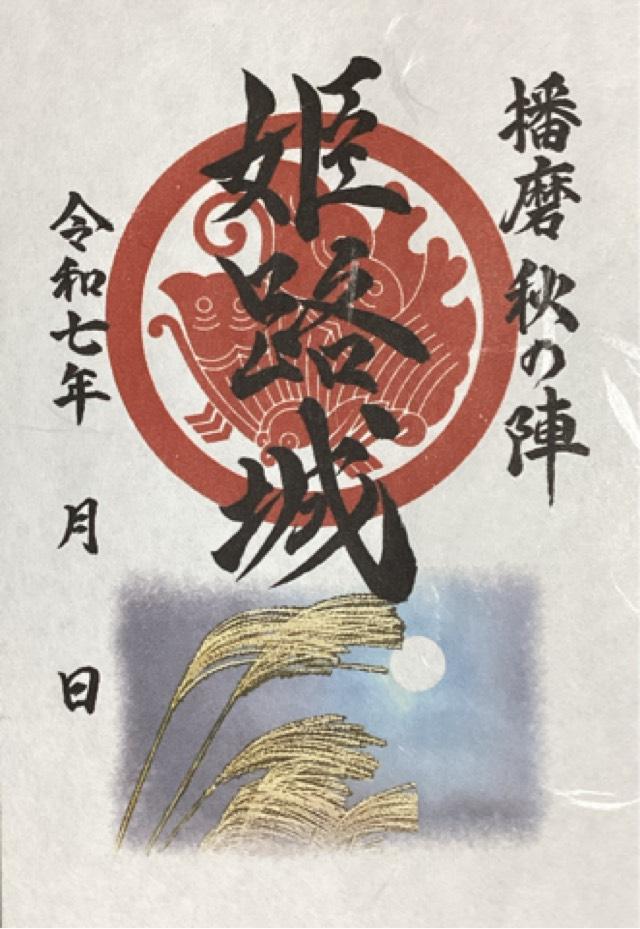 播磨 秋の陣
姫路城
令和七年 月 日